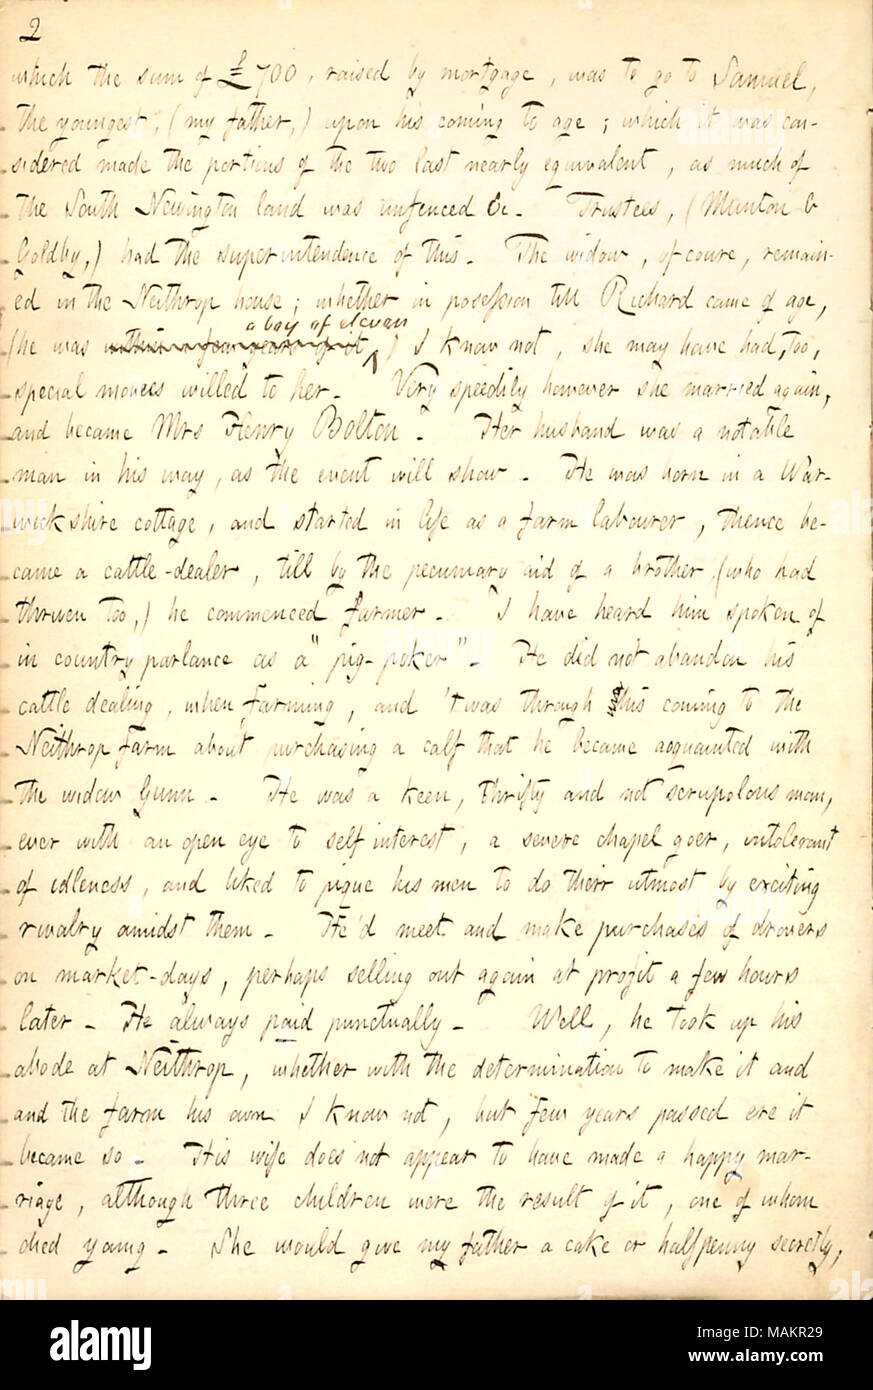 2
which the sum of £700, raised by mortgage, was to go to Samuel,
the youngest, (my father,) upon his coming to age; which it was con-
sidered made the portions of the two last nearly equivalent, as much of
the South Newington land was unfenced &c. Trustees, (Munton &
Goldby,) had the superintendence of this. The widow, of coure, remain-
ed in the Neithrop house; whether in possession till Richard came of age,
a boy of eleven
(he was within a few years of it ^) I know not, she may have had, too,
special moneis willed to her. Very speedily however she married again,
and became Mrs Henry Bolton. Her husband was a notable
man in his way, as the event will show. He was born in a War-
wickshire cottage, and started in life as a farm labourer, thence be-
came a cattle-dealer, till by the pecuniary aid of a brother (who had
thriven too,) he commenced farmer. I have heard him spoken of
in country parlance as a "pig-poker". He did not abandon his
cattle dealing, when farming, and 't was through his coming to the
Neithrop farm about purchasing a calf that he became acquainted with
the widow Gunn. He was a keen, thrifty and not scrupolous man,
ever with an open eye to self interest, a severe chapel goer, intolerant
of idleness, and liked to pique his men to do their utmost by exciting
rivalry amidst them. He'd meet and make purchases of drovers
on market-days, perhaps selling out again at profit a few hours
later. He always paid punctually. Well, he took up his
abode at Neithrop, whether with the determination to make it and
and the farm his own I know not, but few years passed ere it
became so. His wife does not appear to have made a happy mar-
riage, although three children were the result of it, one of whom
died young. She would give my father a cake or halfpenny secretly,
alamy
Image ID: MAKR29
www.alamy.com